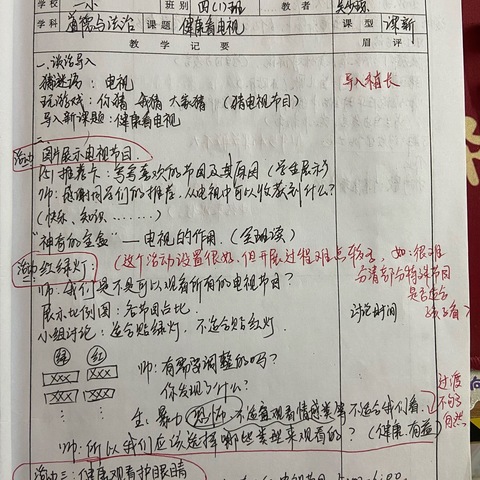 学校 一小 班别 四(1)班 教者
学科 道德与法治 课题 健康看电视 课型 课新
教学记要 眉评
一、谈话导入
猜谜语：电视 导入稍长
玩游戏：你猜 我猜 大家猜 （猜电视节目）
导入新课题：健康看电视
二、
活动一 图片展示电视节目.
推荐卡：写写喜欢的节目及其原因（学生展示）
师：感谢同学们的推荐，从电视中可以收获到什么？
（快乐、知识……）
"神奇的宝盒"——电视的作用.（全班读）
活动二 红绿灯：（这个活动设置很好，但开展过程难点较多，如：很难
分清部分特殊节目
师：我们是不是可以观看所有的电视节目？ 是否适合
展示比例图：各节目占比. 讨论时间
小组讨论：适合贴绿灯，不适合贴红灯.
绿 红
XXX XXX 师：有需要调整的吗？
XXX XXX 你发现了什么？
过渡
生：暴力 恐怖 不适宜观看 情感类等不适合我们看. 不够
自然
师：所以我们应该选择哪些类型来观看的？（健康、有益）
活动三：健康观看护眼睛